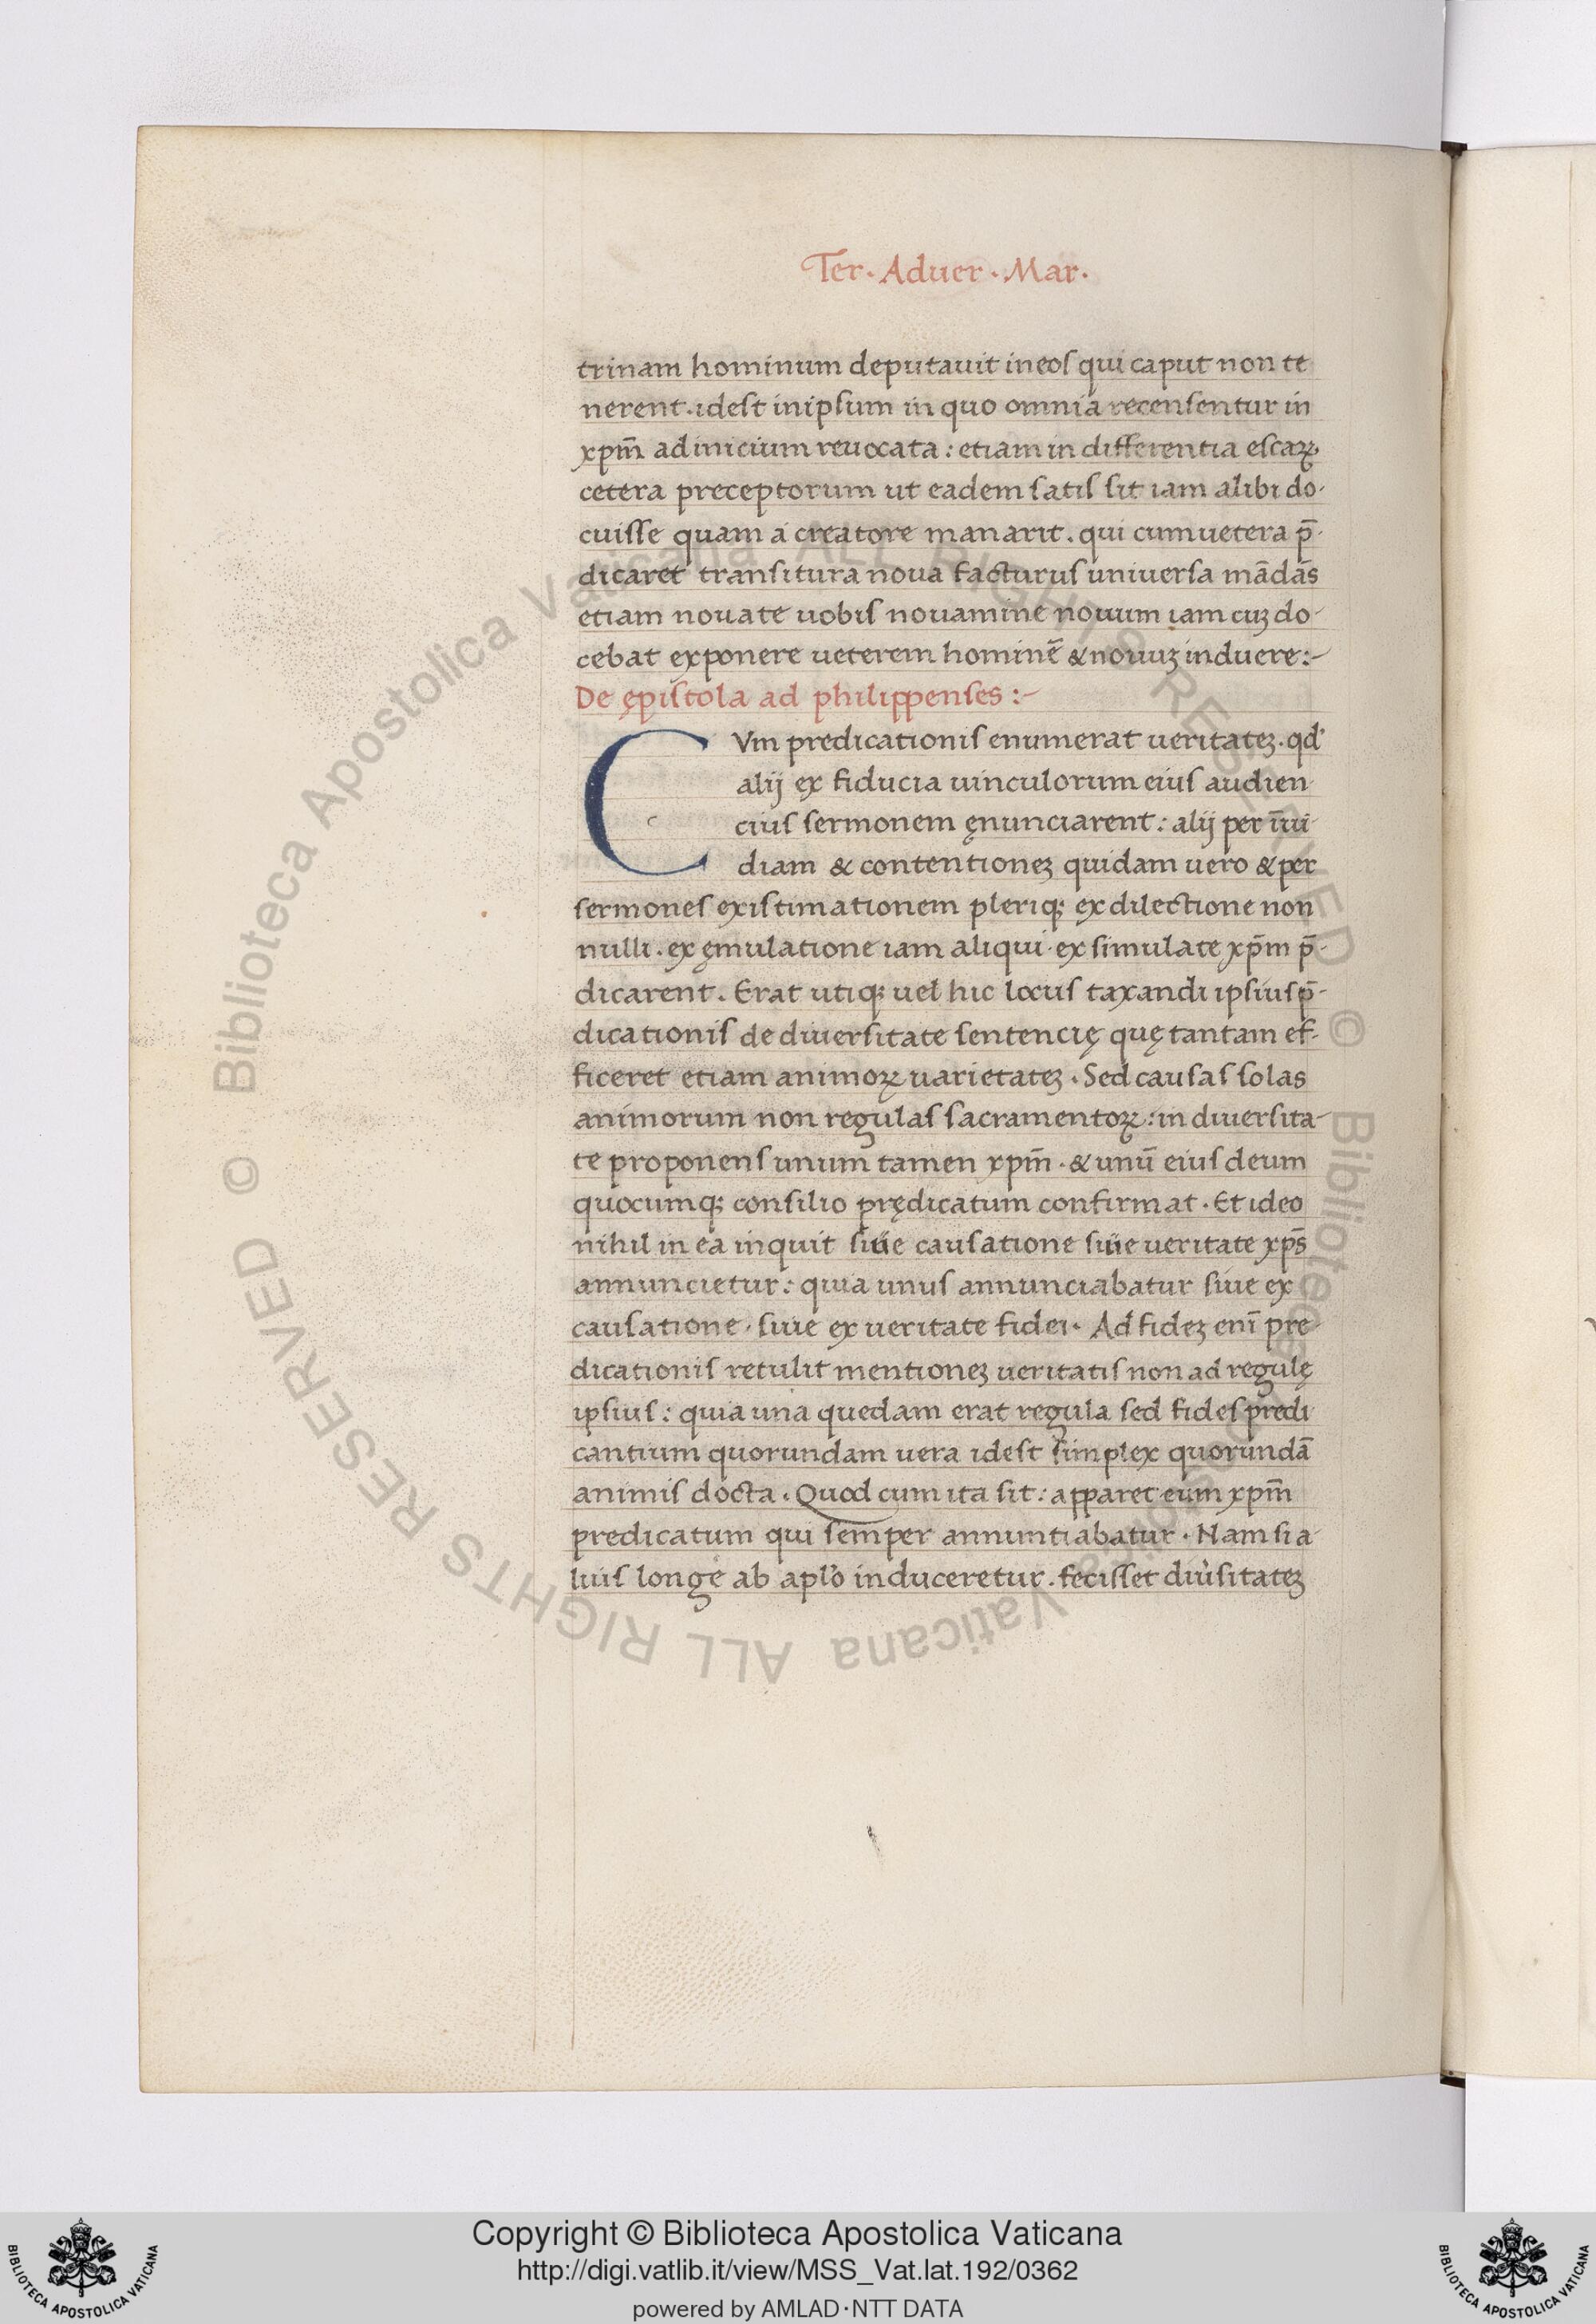 Ter. Aduer. Mar.
trinam hominum deputauit in eos qui caput non te
nerent. idest in ipsum in quo omnia recensentur in
xpm̄ ad inicium reuocata: etiam in differentia escaꝝ
cetera preceptorum ut eadem satis sit iam alibi do-
cuisse quam a creatore manarit. qui cum uetera p̄-
dicaret transitura noua facturus uniuersa mādās
etiam nouate uobis nouamine nouum iam cuꝫ do-
cebat exponere ueterem hominē & nouuꝫ induere:-
De ępistola ad philippenses:-
CVm predicationis enumerat ueritateꝫ. qd'
alij ex fiducia uinculorum eius audien
cius sermonem ęnunciarent: alij per īui
diam & contentioneꝫ quidam uero & per
sermones existimationem pleriqꝫ ex dilectione non
nulli. ex ęmulatione iam aliqui. ex simulate xp̄m p̄-
dicarent. Erat utiqꝫ uel hic locus taxandi ipsius p̄-
dicationis de diuersitate sentencię quę tantam ef-
ficeret etiam animoꝝ uarietateꝫ. Sed causas solas
animorum non regulas sacramentoꝝ: in diuersita-
te proponens unum tamen xpm̄. & unū eius deum
quocumqꝫ consilio prędicatum confirmat. Et ideo
nihil in ea inquit siue causatione siue ueritate xps̄
annuncietur: quia unus annunciabatur siue ex
causatione. siue ex ueritate fidei. Ad fideꝫ enī pre
dicationis retulit mentioneꝫ ueritatis non ad regulę
ipsius: quia una quedam erat regula sed fides predi
cantium quorundam uera idest simplex quorundā
animis docta. Quod cum ita sit: apparet eum xpm̄
predicatum qui semper annuntiabatur. Nam si a
luis longe ab aplo induceretur. fecisset diu'sitateꝫ
© Biblioteca Apostolica Vaticana ALL RIGHTS RESERVED © Biblioteca Apostolica Vaticana ALL RIGHTS RESERVED
Copyright © Biblioteca Apostolica Vaticana
http://digi.vatlib.it/view/MSS_Vat.lat.192/0362
powered by AMLAD·NTT DATA
BIBLIOTECA APOSTOLICA VATICANA
BIBLIOTECA APOSTOLICA VATICANA